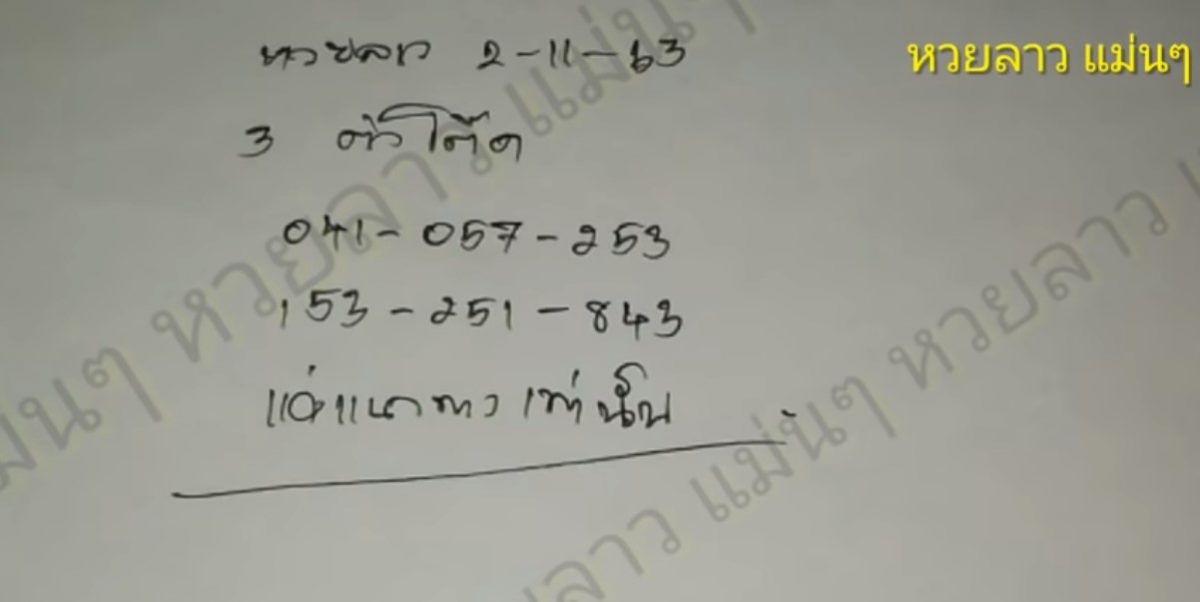 หวยลาว 2-11-63
หวยลาว แม่นๆ
3 ตัวโต๊ด
041-057-253
153-251-843
เท่านั้น
หวยลาว แม่นๆ
แม่นๆ
หวยลาว แม่นๆ